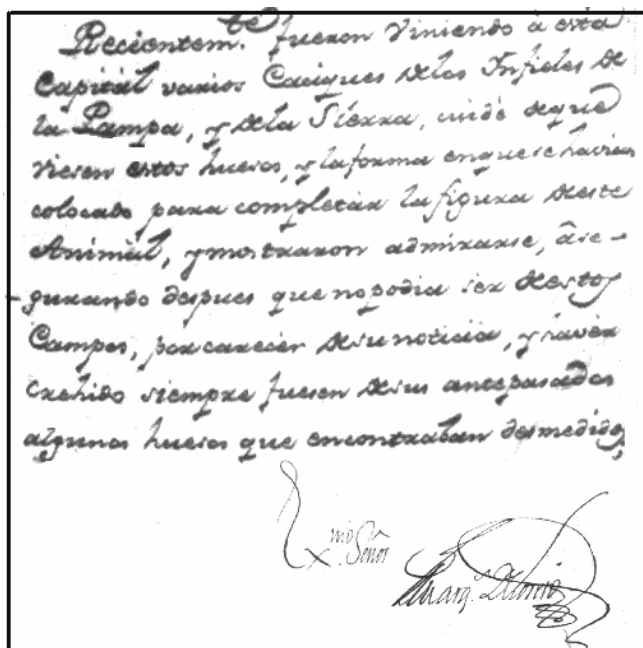 Recientem.te fueron viniendo á esta
Capitál varios Caciques delos Infieles de
la Pampa, y dela Sierra, cuidé deque
viesen estos huesos, y laforma enque se havian
colocado para completár la figura deste
Animál, y mostraron admirarse, ase-
gurando despues que no podia ser destos
Campos, por carecér desu noticia, y haver
crehido siempre fuesen desus antepasados
algunos huesos que encontraban desmedidos,
Exmo. Señor
Marq.s De Loreto